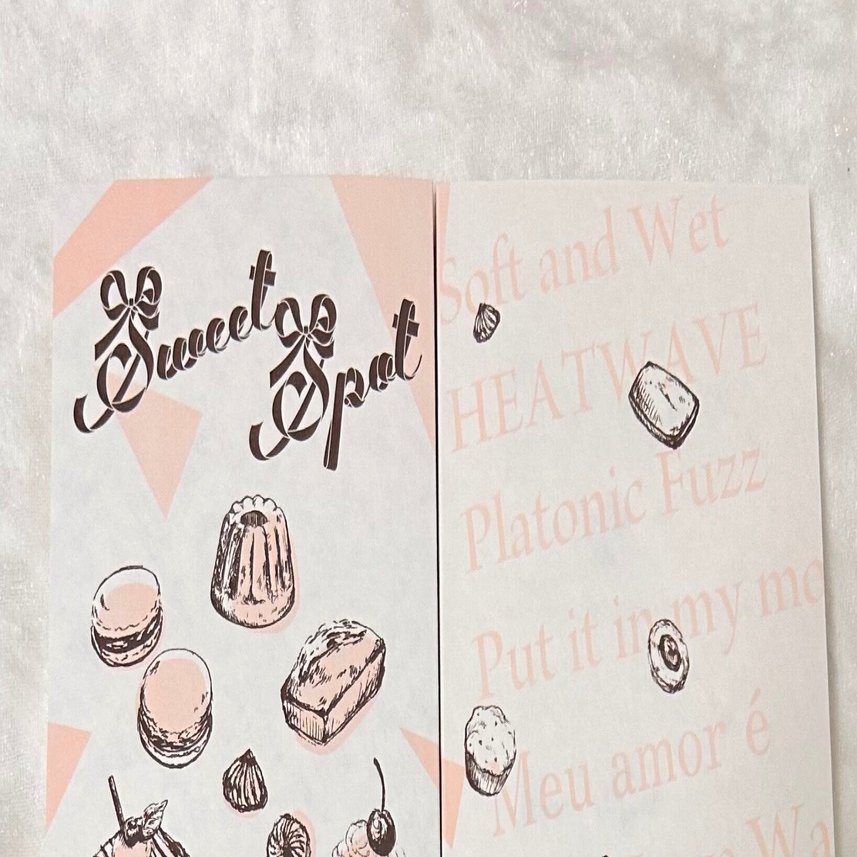 Sweet
Spot
Soft and Wet
HEATWAVE
Platonic Fuzz
Put it in my
Meu amor é